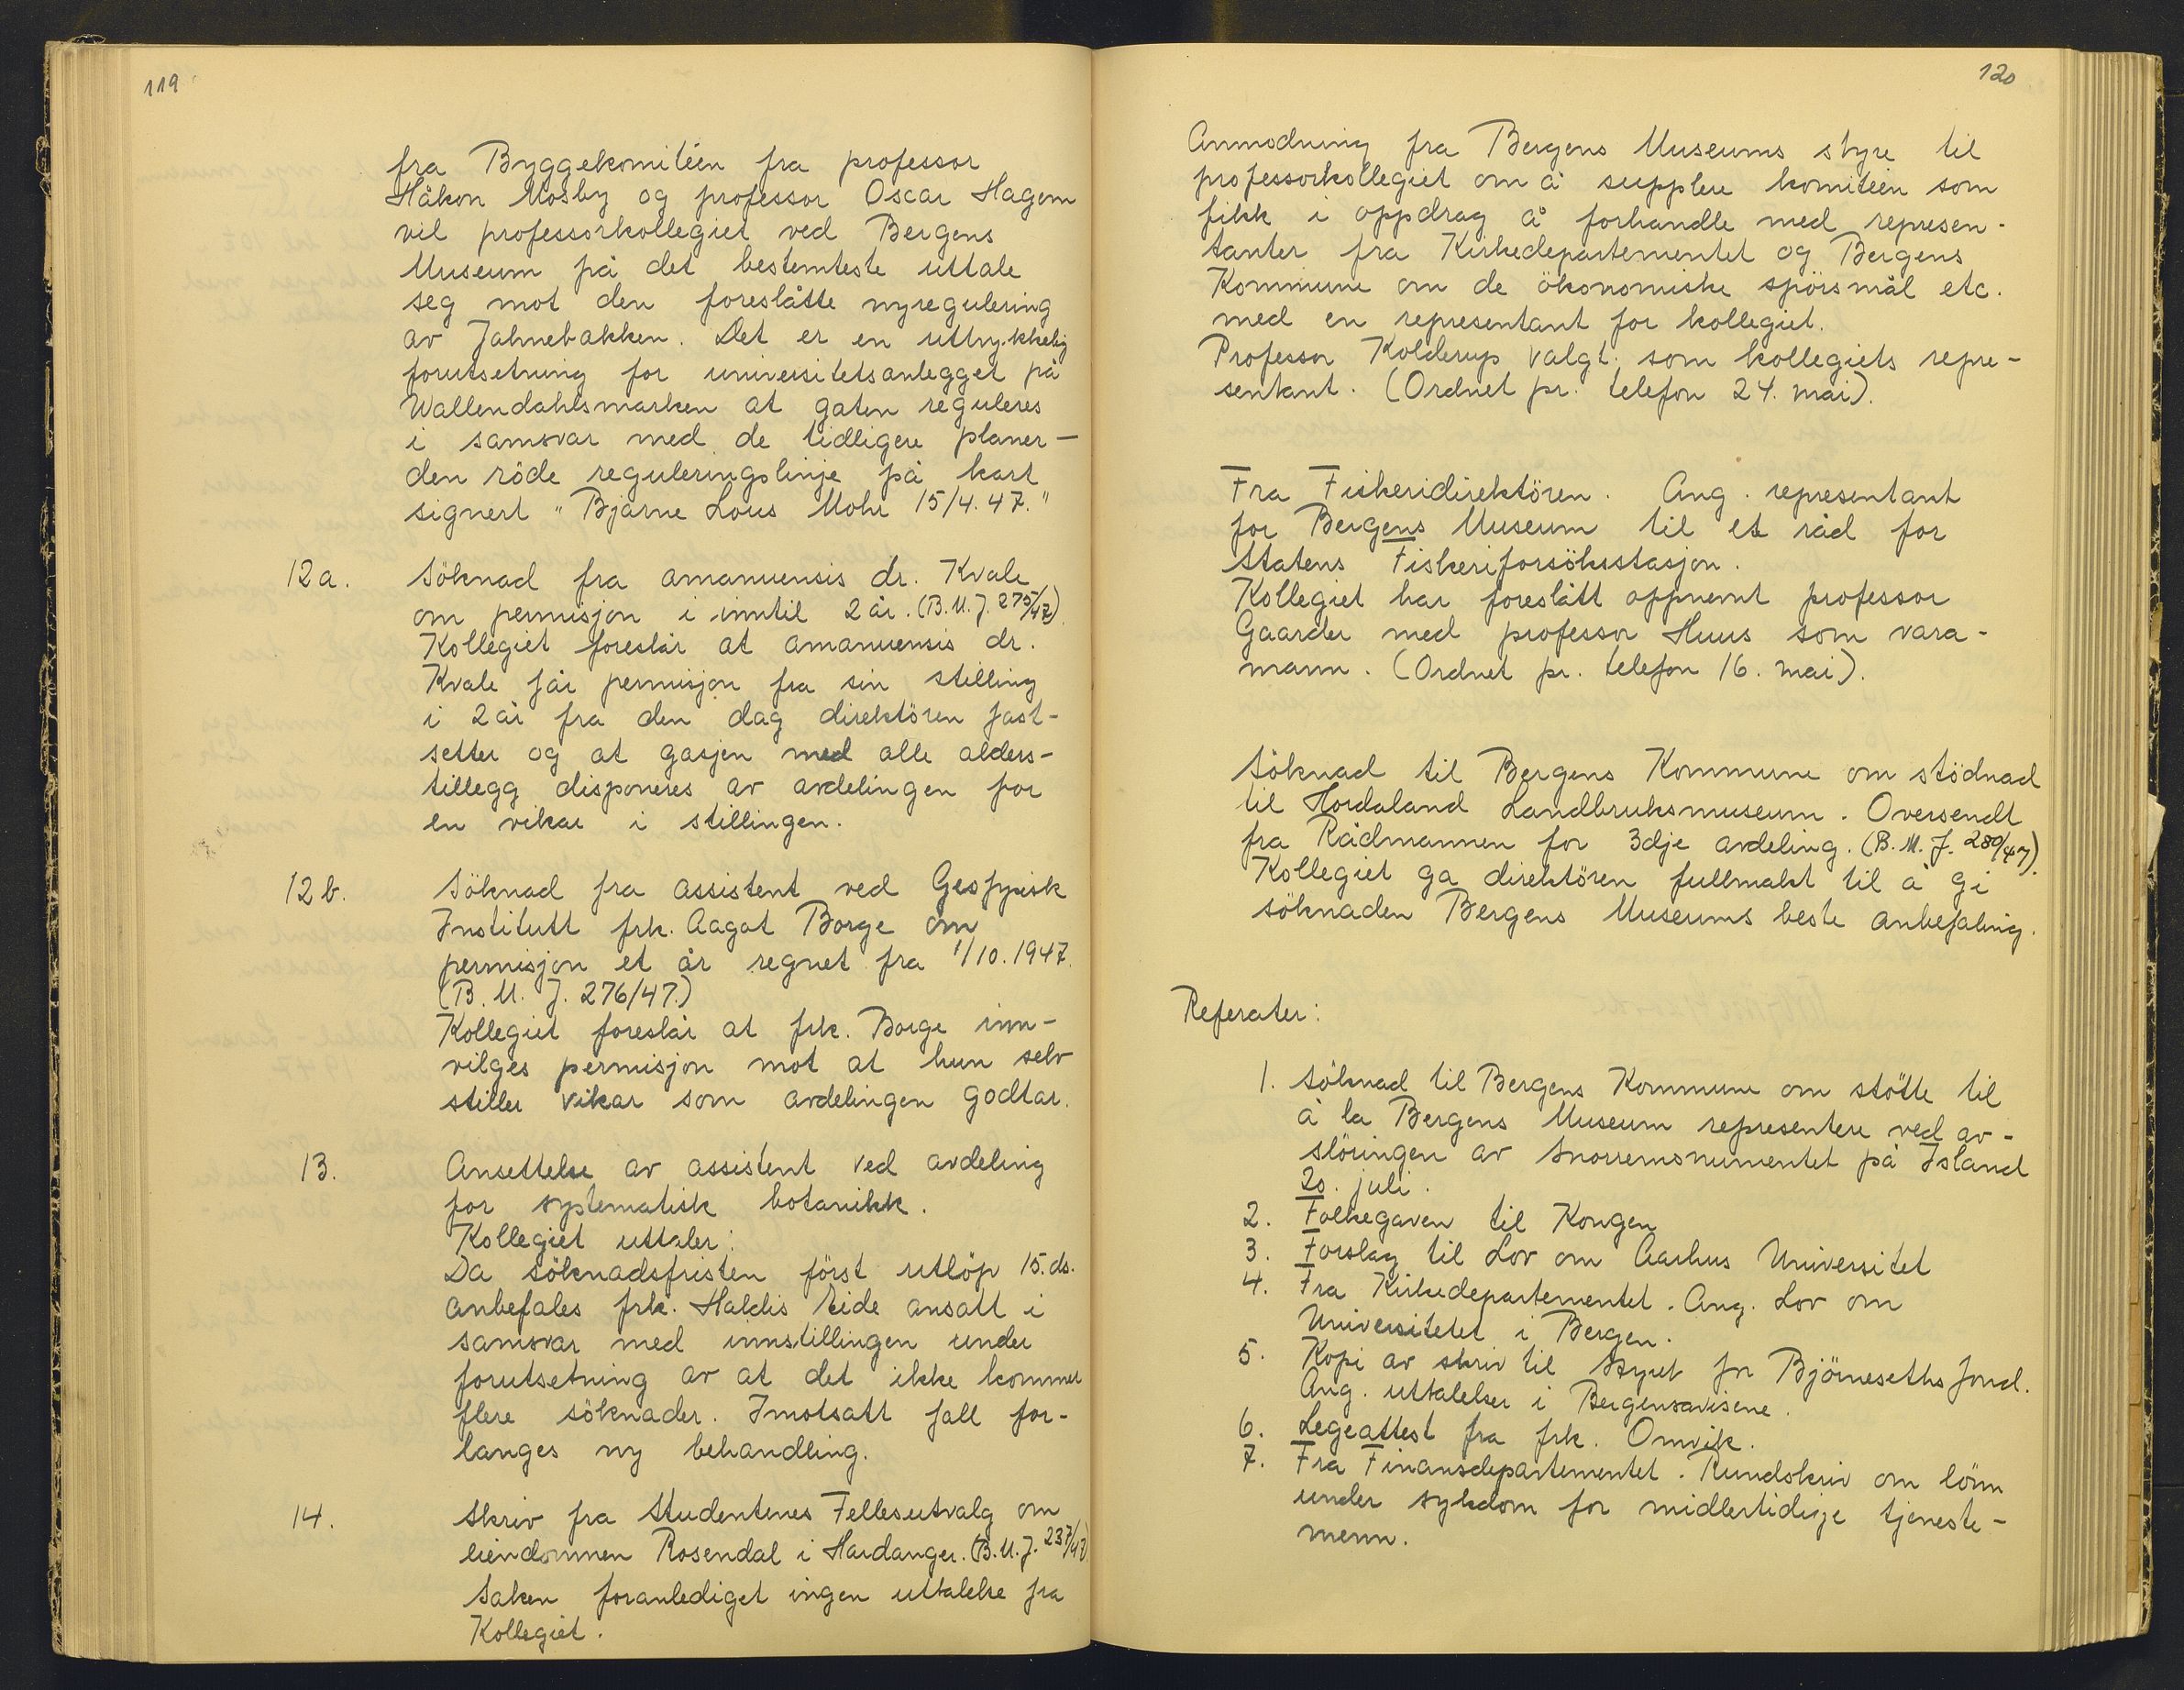 119
fra Byggekomitéen fra professor
Håkon Mosby og professor Oscar Hagem
vil professorkollegiet ved Bergens
Museum på det bestemteste uttale
seg mot den foreslåtte nyregulering
av Jahnebakken. Det er en uttrykkelig
forutsetning for universitetsanlegget på
Wallendahlsmarken at gaten reguleres
i samsvar med de tidligere planer —
den röde reguleringslinje på kart
signert "Bjarne Lous Mohr 15/4.47."
12a. Söknad fra amanuensis dr. Kvale
om permisjon i inntil 2 år. (B.M.J. 275/47)
Kollegiet foreslår at amanuensis dr.
Kvale får permisjon fra sin stilling
i 2 år fra den dag direktören fast-
setter og at gasjen med alle alders-
tillegg disponeres av avdelingen for
en vikar i stillingen.
12b. Söknad fra assistent ved Geofysisk
Institutt frk. Aagot Borge om
permisjon et år regnet fra 1/10.1947.
(B.M.J. 276/47.)
Kollegiet foreslår at frk. Borge inn-
vilges permisjon mot at hun selv
stiller vikar som avdelingen godtar.
13. Ansettelse av assistent ved avdeling
for systematisk botanikk.
Kollegiet uttaler:
Da söknadsfristen först utlöp 15. ds.
anbefales frk. Haldis Eide ansatt i
samsvar med innstillingen under
forutsetning av at det ikke kommer
flere söknader. Imotsatt fall for-
langes ny behandling.
14. Skriv fra Studentenes Fellesutvalg om
eiendommen Rosendal i Hardanger. (B.M.J. 237/47)
Saken foranlediget ingen uttalelse fra
Kollegiet.
120
Anmodning fra Bergens Museums styre til
professorkollegiet om å supplere komitéen som
fikk i oppdrag å forhandle med represen-
tanter fra Kirkedepartementet og Bergens
Kommune om de ökonomiske spörsmål etc.
med en representant for kollegiet.
Professor Kolderup valgt som kollegiets repre-
sentant. (Ordnet pr. telefon 24. mai).
Fra Fiskeridirektören. Ang. representant
for Bergens Museum til et råd for
Statens Fiskeriforsöksstasjon.
Kollegiet har foreslått oppnevnt professor
Gaarder med professor Huus som vara-
mann. (Ordnet pr. telefon 16. mai).
Söknad til Bergens Kommune om stödnad
til Hordaland Landbruksmuseum. Oversendt
fra Rådmannen for 3dje avdeling. (B.M.J. 280/47).
Kollegiet ga direktören fullmakt til å gi
söknaden Bergens Museums beste anbefaling.
Referater:
1. Söknad til Bergens Kommune om stötte til
å la Bergens Museum representere ved av-
slöringen av Snorremonumentet på Island
20. juli.
2. Folkegaven til Kongen
3. Forslag til Lov om Aarhus Universitet
4. Fra Kirkedepartementet. Ang. Lov om
Universitetet i Bergen.
5. Kopi av skriv til Styret for Björneseths fond.
Ang. uttalelser i Bergensavisene.
6. Legeattest fra frk. Omvik.
7. Fra Finansdepartementet. Rundskriv om lönn
under sykdom for midlertidige tjeneste-
menn.